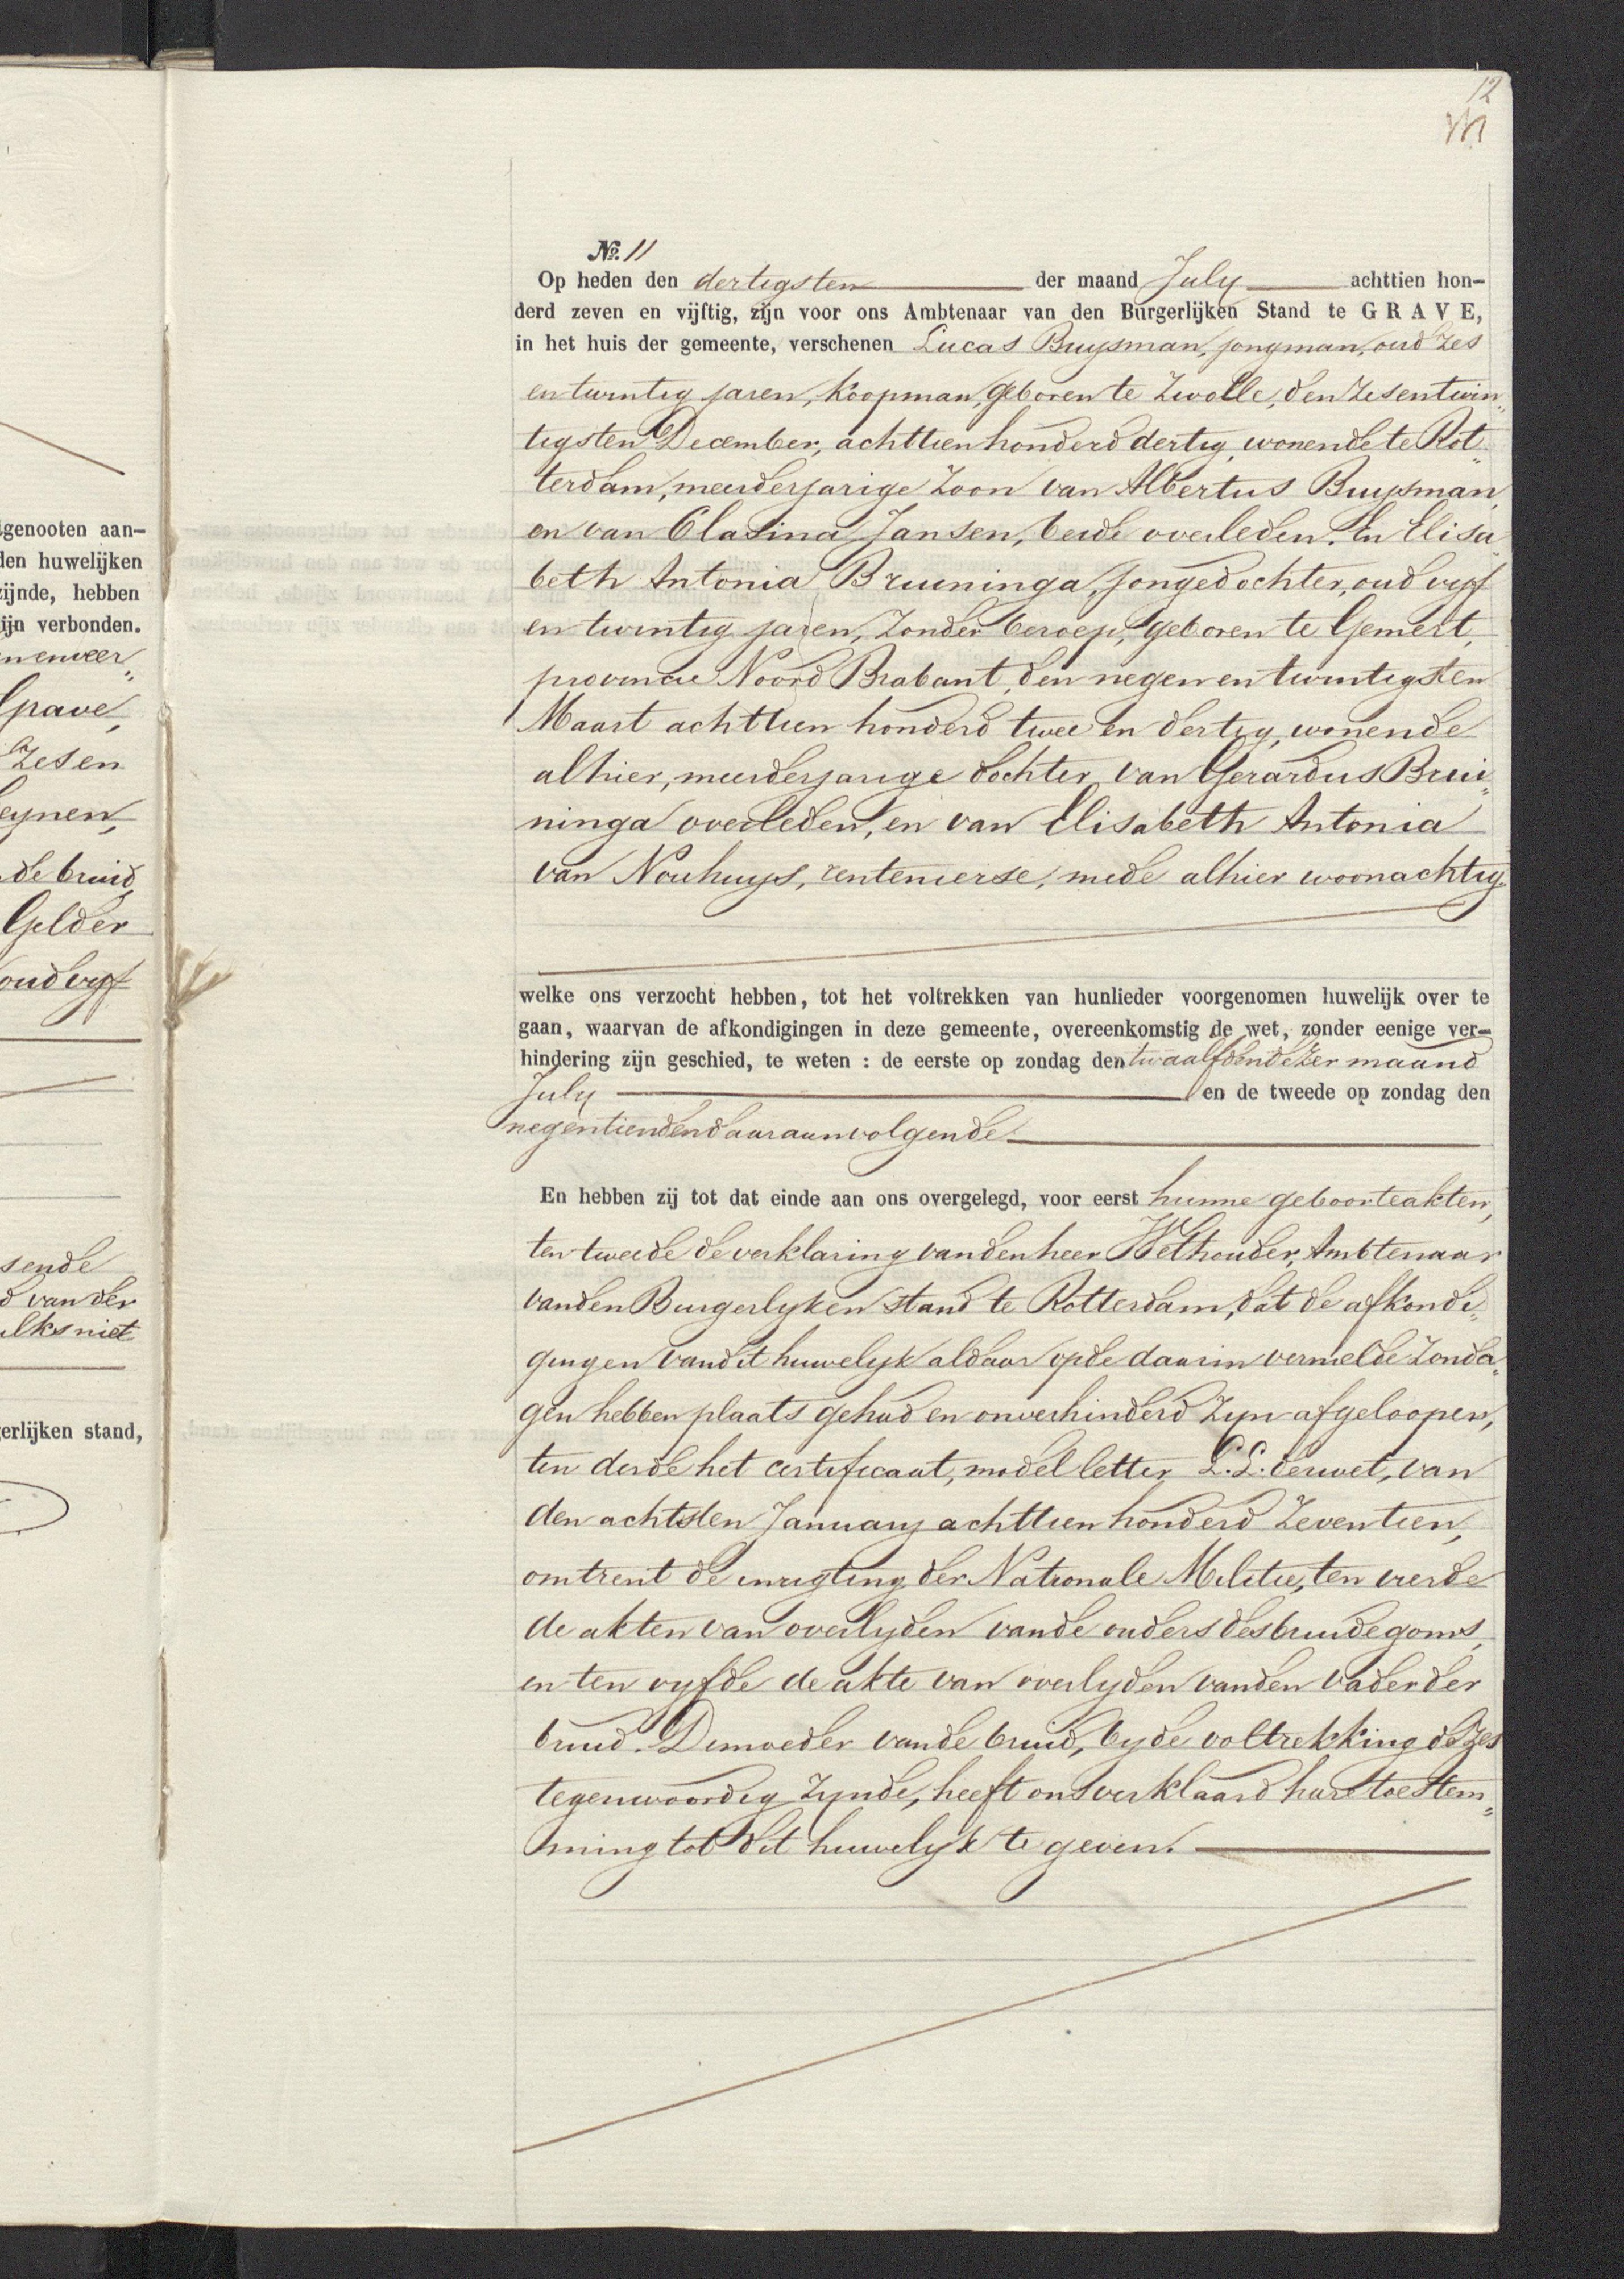 12
No. 11
Op heden den dertigsten der maand July achttien hon-
derd zeven en vijftig, zijn voor ons Ambtenaar van den Burgerlijken Stand te GRAVE,
in het huis der gemeente, verschenen Lucas Buysman, jongman, oud zes
en twintig jaren, koopman, geboren te Zwolle, den zesentwin„
tigsten December, achttienhonderd dertig, wonende te Rot„
terdam, meerderjarige zoon van Albertus Buysman,
en van Clasina Jansen, beide overleden. En Elisa„
beth Antonia Bruininga, jongedochter, oud vyf
en twintig jaren, zonder beroep, geboren te Gemert,
provincie Noord Brabant, den negen en twintigsten
Maart achttien honderd twee en dertig, wonende
alhier, meerderjarige dochter van Gerardus Brui„
ninga overleden, en van Elisabeth Antonia
van Nouhuys, rentenierse, mede alhier woonachtig.
welke ons verzocht hebben, tot het voltrekken van hunlieder voorgenomen huwelijk over te
gaan, waarvan de afkondigingen in deze gemeente, overeenkomstig de wet, zonder eenige ver-
hindering zijn geschied, te weten : de eerste op zondag den twaalfden dezer maand
July en de tweede op zondag den
negentienden daaraanvolgende
En hebben zij tot dat einde aan ons overgelegd, voor eerst hunne geboorteakten,
ten tweede de verklaring van den heer Wethouder, Ambtenaar
van den Burgerlyken stand te Rotterdam, dat de afkondi„
gingen van dit huwelyk aldaar op de daarin vermelde zonda„
gen hebben plaats gehad en onverhinderd zyn afgeloopen,
ten derde het certificaat, model letter L.L. der wet, van
den achtsten January achttien honderd zeventien,
omtrent de inrigting der Nationale Militie, ten vierde
de akten van overlyden van de ouders des bruidegoms,
en ten vyfde de akte van overlyden van den vader der
bruid. De moeder van de bruid, by de voltrekking dezes
tegenwoordig zynde, heeft ons verklaard hare toestem„
ming tot dit huwelyk te geven.
tgenooten aan-
den huwelijken
zijnde, hebben
ijn verbonden.
Grave,
zesen
eynen,
de bruid
Gelder
oud vyf
sende
d van der
ulks niet
gerlijken stand,